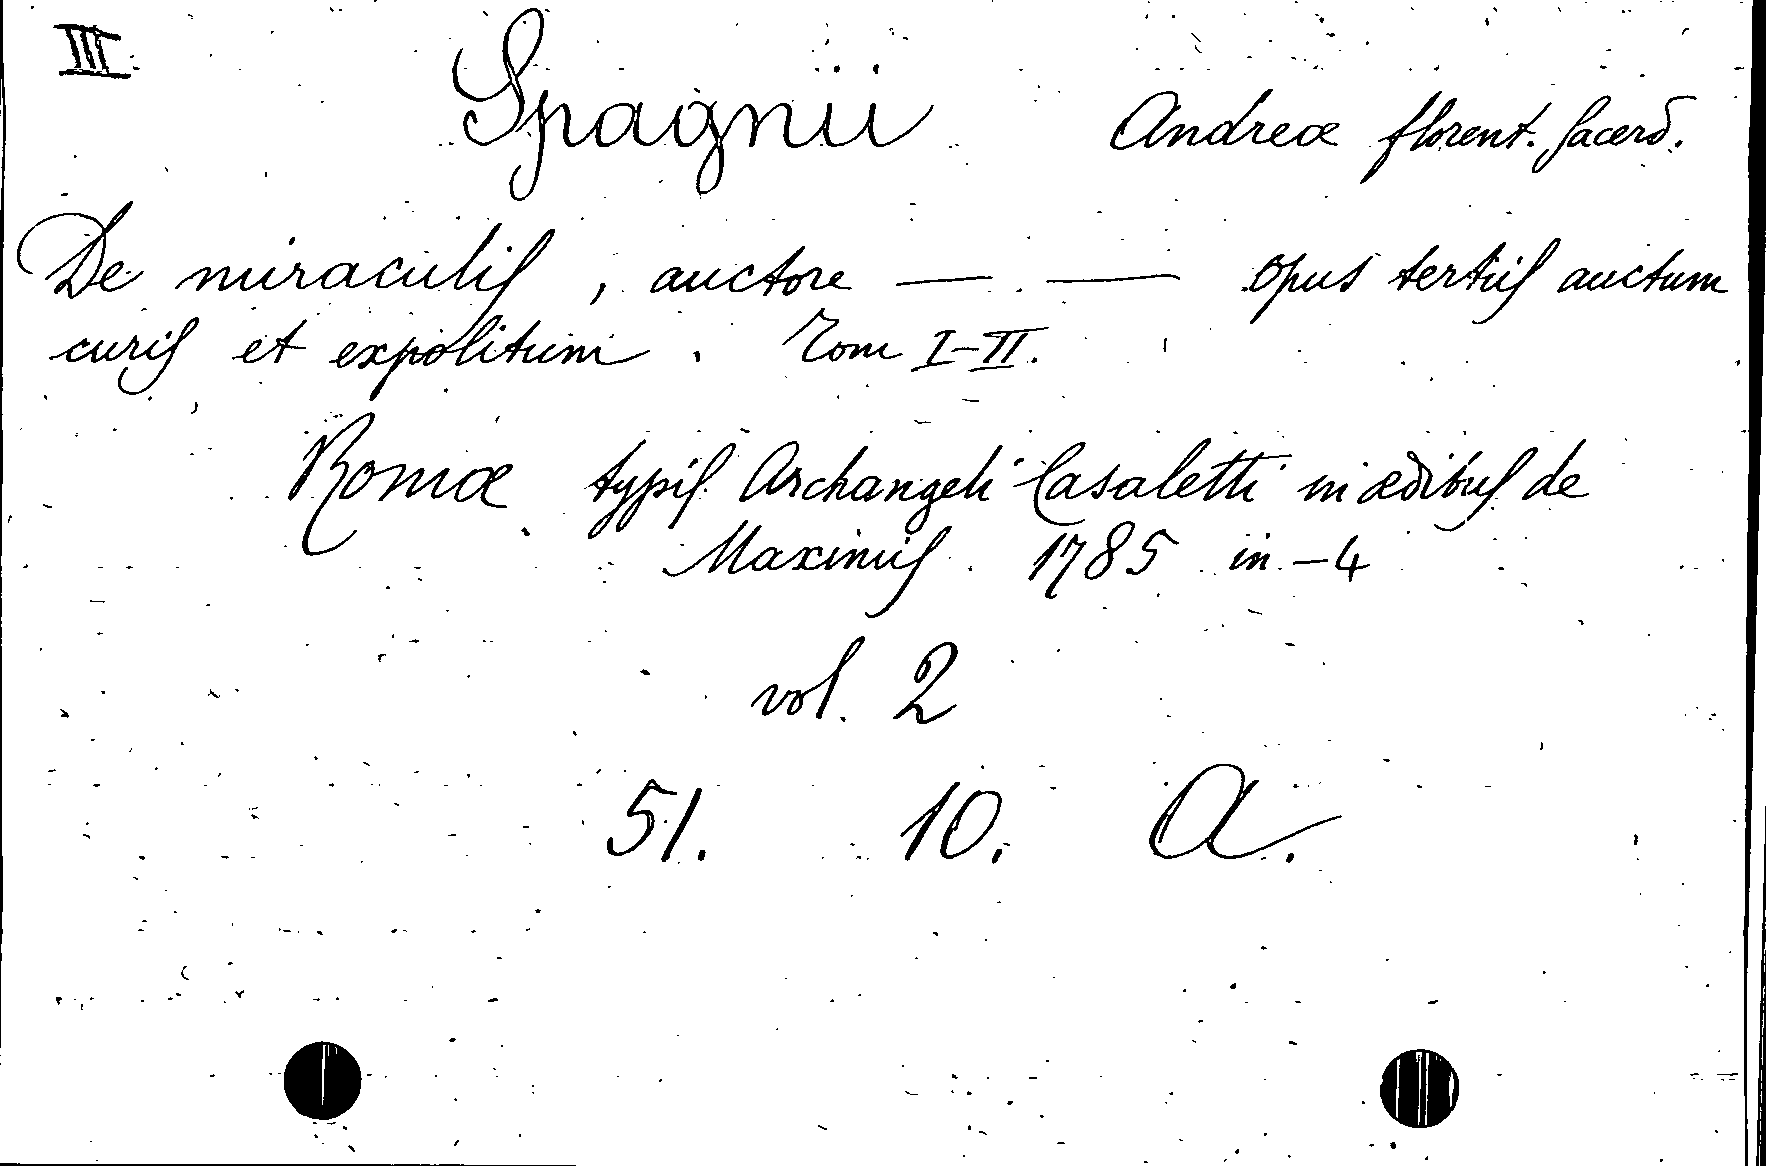 III
Spagnii Andreæ florent. sacerd.
De miraculis, auctore — — opus tertiis auctum
curis et expolitum. Tom I-II.
Romæ typis Archangeli Casaletti in ædibus de
Maximis. 1785 in-4
vol. 2
51. 10. a.